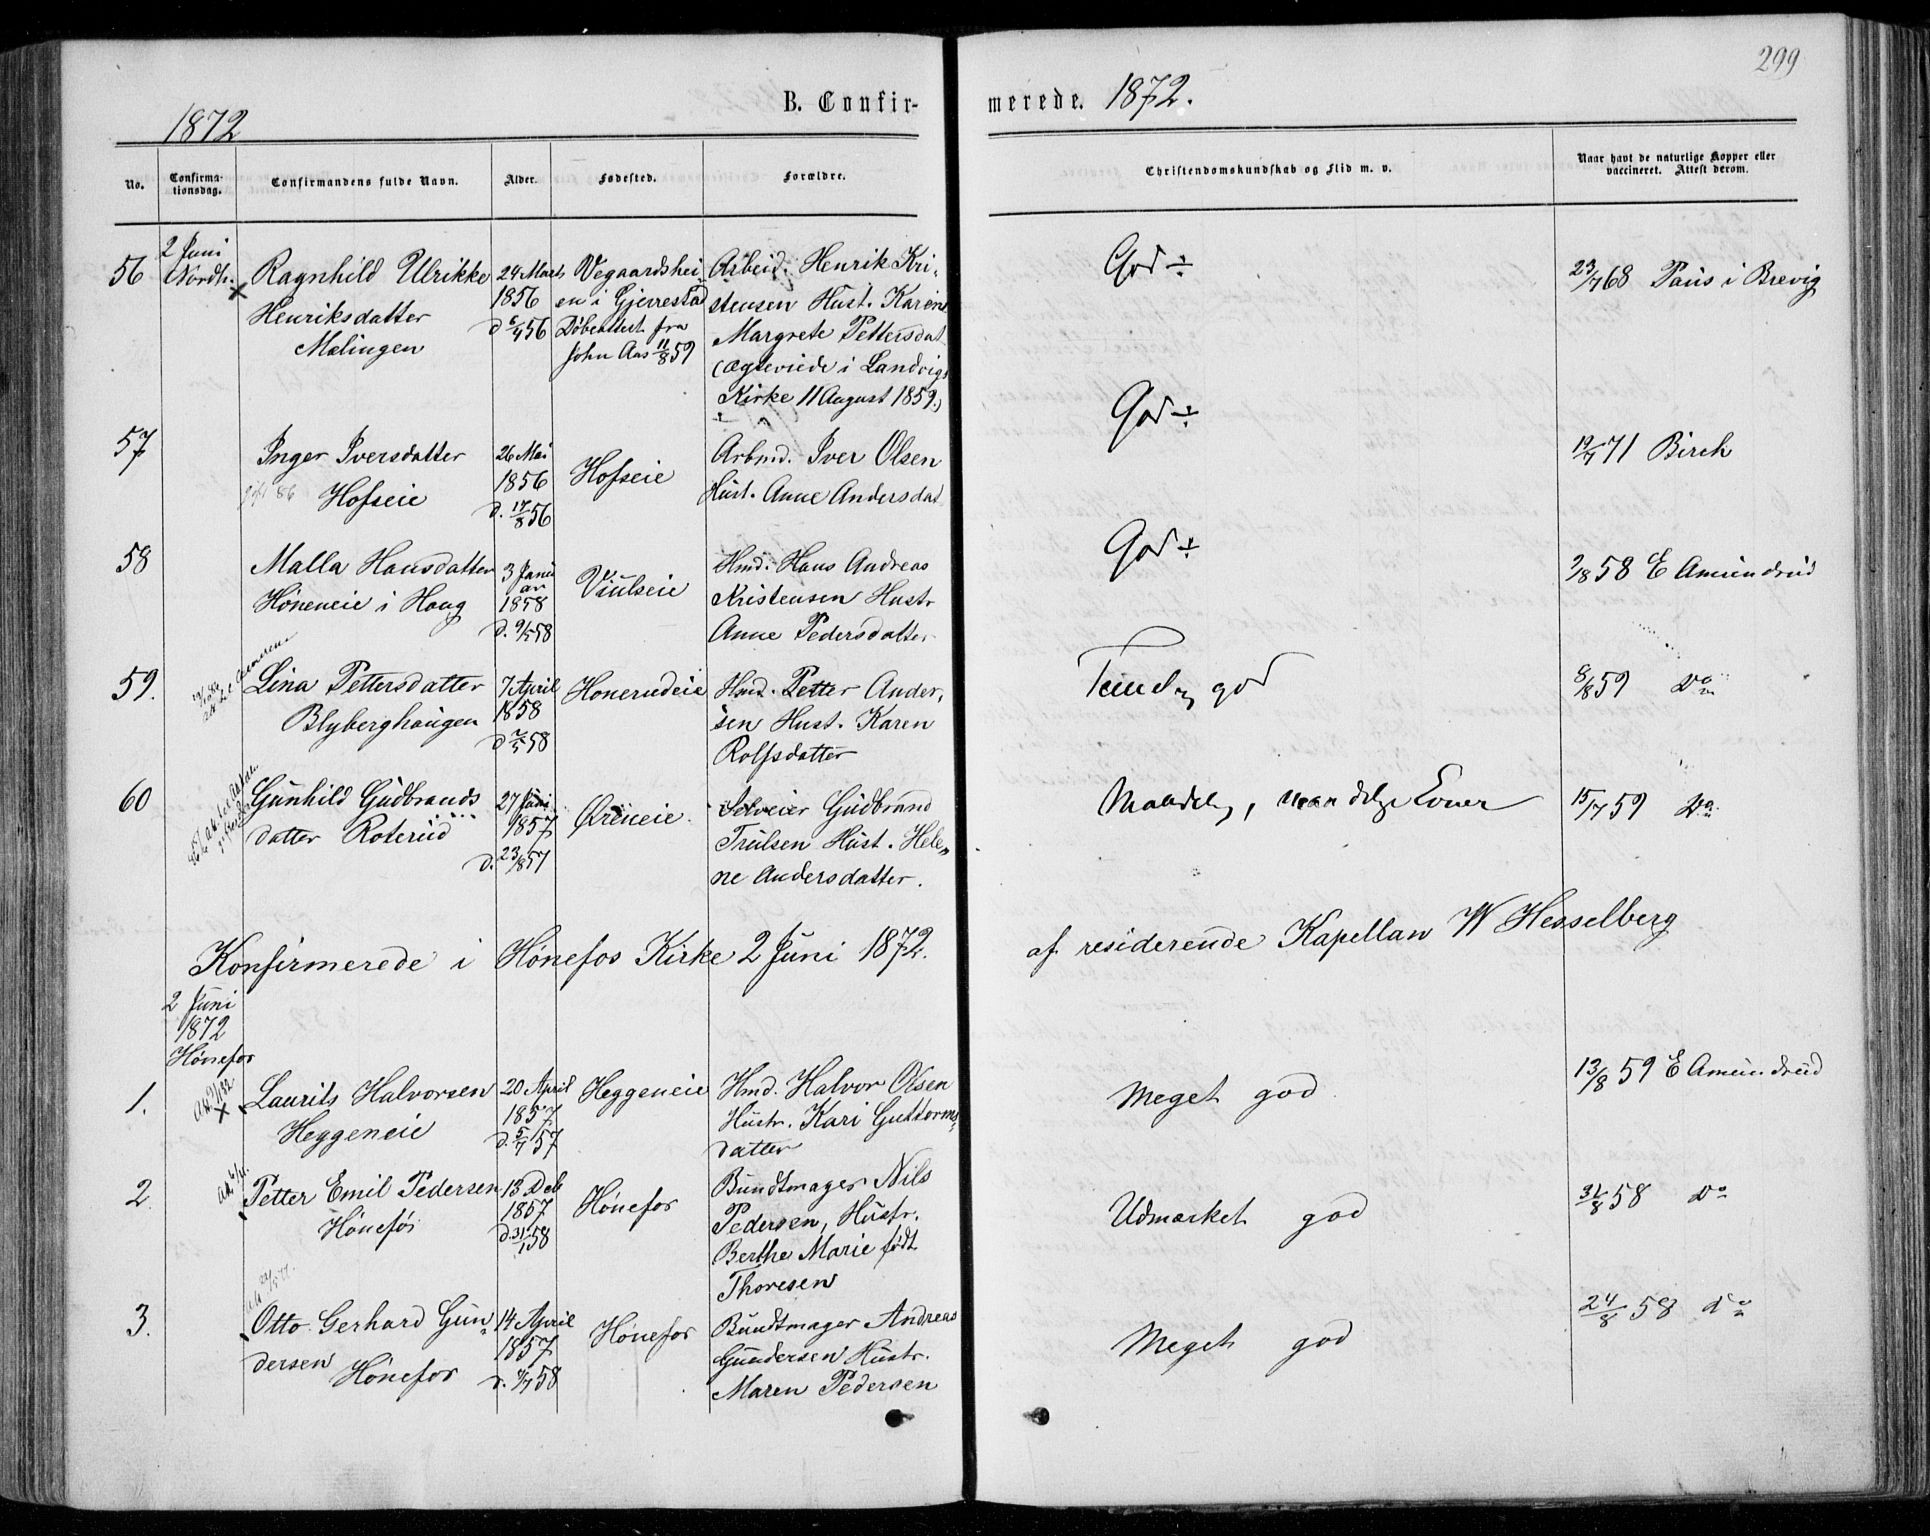 299
1872
B. Confir-
merede. 1872.
No.
Confirma-
tionsdag.
Confirmandens fulde Navn.
Alder.
Fødested.
Forældre.
Christendomskundskab og Flid m. v.
Naar havt de naturlige Kopper eller
vaccineret. Attest derom.
56
2 Juni
Nordh.
Ragnhild Ulrikke
Henriksdatter
Mælingen
24 Marts
1856
d 6/4 56
Vegaardshei
en i Gjerrestad
Døbeattest fra
John Aas 11/8 59
Arbeid. Henrik Kri-
stensen Hust. Karine
Margrete Pettersdat
(ægteviede i Landvigs
Kirke 11 August 1859.)
God ÷
23/7 68 Paus i Brevig
57
Inger Iversdatter
Hofseie
26 Mai
1856
d. 17/8 56
Hofseie
Arbmd. Iver Olsen
Hust. Anne Andersdat
God ÷
19/7 71 Birch
58
Malla Hansdatter
Høneneie i Haug
3 Janu
ar
1858
d. 9/5 58
Viulseie
Hmd. Hans Andreas
Kristensen Hustr
Anne Pedersdatter
God ÷
9/8 58 E Amundrud
59.
Lina Pettersdatter
Blyberghaugen
7 April
1858
d 2/5 58
Honerudeie
Hmd. Petter Ander,
sen Hust. Karen
Rolfsdatter
god
8/8 59 Do
60
Gunhild Gudbrands
datter Roterud
27 Juni
1857
d. 23/8 57
Øreneie.
Selveier Gudbrand
Trulsen Hust. Hele„
ne Andersdatter.
Maadelig, maadelige Evner
15/7 59 Do
Konfirmerede i Hønefos Kirke 2 Juni 1872.
af residerende Kapellan W Hesselberg
2 Juni
1872
Hønefos
1.
Laurits Halvorsen
Heggeneie
20 April
1857
d. 5/7 57
Heggeneie
Hmd. Halvor Olsen
Hustr. Kari Guttorms„
datter
Meget god
13/8 59 E Amundrud
2
Petter Emil Pedersen
Hønefos
13 Deb
1857
d. 31/1 58
Hønefos
Bundtmager Nils
Pedersen, Hustr.
Berthe Marie født
Thoresen
Udmærket god
31/8 58 Do
3.
Otto Gerhard Gun„
dersen
Hønefos
14 April
1857
Hønefos
Bundtmager Andreas
Gundersen Hustr.
Maren Pedersen
Meget god
24/8 58 do